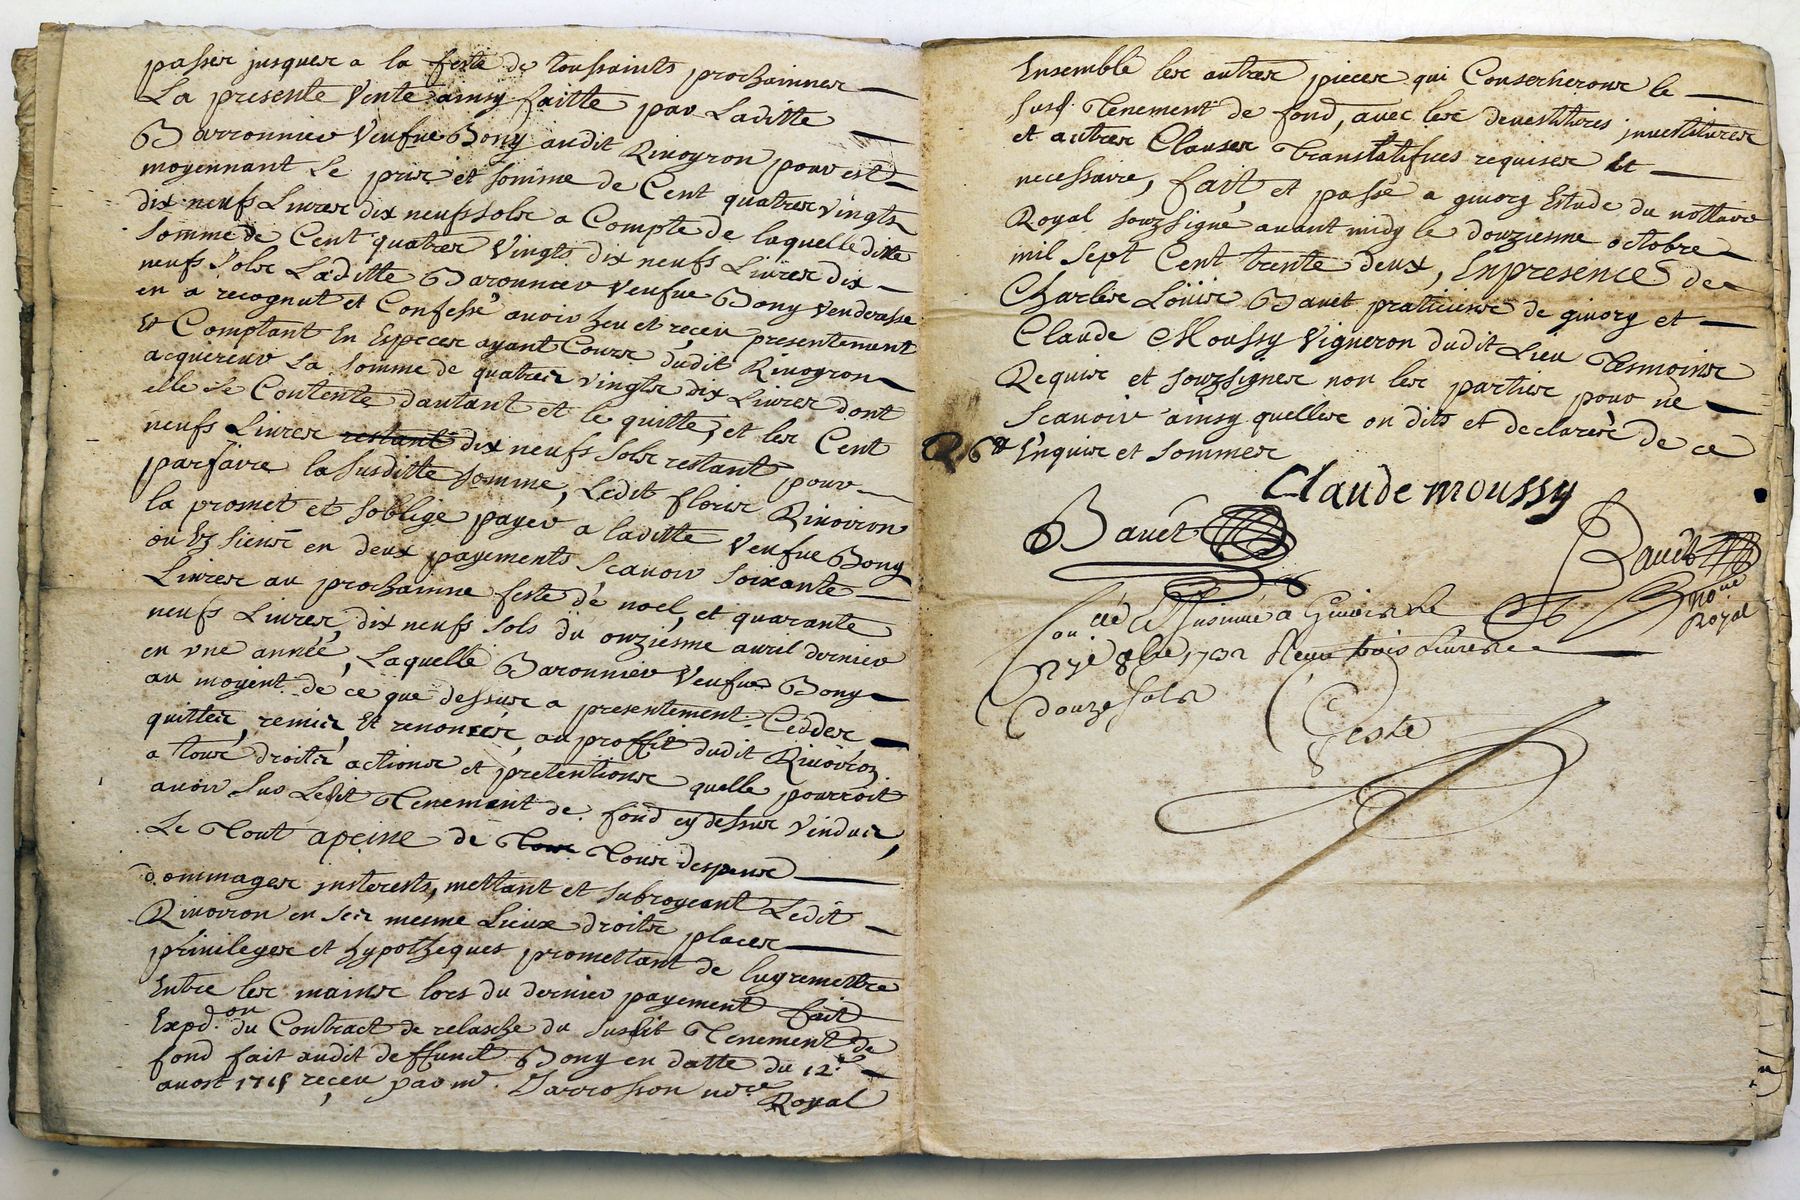 passer jusques a la feste de toussaints prochainnes
La presente Vente ainsy faitte par Laditte
Baronnier Veufue Bony audit Riuoyron pour est
moyennant Le prix et somme de Cent quatres vingts
dix neufs Liures dix neufs sols a Compte de laquelle ditte
somme de Cent quatres Vingts dix neufs Liures dix
neufs sols Laditte Baronnier Veufue Bony Venderesse
en a recognut et Confessé auoir heu et receu presentement
Et Comptant En Especes ayant Cours dudit Riuoyron
acquereur La somme de quatres vingts dix Liures dont
elle se Contente dautant et le quitte, et les Cent
neufs Liures restant dix neufs sols restant pour
parfaire la susditte somme, Ledit floris Riuoiron
la promet et soblige payer a laditte Veufue Bony
ou Es siens en deux payements Scauoir soixante
Liures au prochainne feste de noel, et quarante
neufs Liures, dix neufs sols du onziesme auril dernier
en vne année, Laquelle Baronnier Veufue Bony
au moyent de ce que dessus a presentement Cedder
quitter, remis, Et renoncer, au proffit dudit Riuoiron
a tous droits, actions et pretentions quelle pourroit
auoir sur Ledit Tenement de fond cy dessus Vendus,
Le Tout apeine de Tous despens
dommages jnterests, mettant et subrogeant Ledit
Riuoiron en ses mesme Lieux droits places
priuileges et hypotheques promettant de luy remettre
Entre les mains lors du dernier payement fait
Expd.on du Contract de relasche du susdit Tenement de
fond fait audit deffunct Bony en datte du 12.e
aoust receu par me. nre.
Royal
Ensemble les autres pieces qui Conserherons le
susd. Tenement de fond, auec les deuestitures jnuestitures
et autres Clauses Translatifues requises Et
necessaire, fait, et passé a giuorg Estude du nottaire
Royal souzsigné auant midy le douziesme octobre
mil sept Cent trente deux, En presence de
Charles Loüis Bauet praticiens de giuorg et
Claude Moussy Vigneron dudit Lieu Tesmoins
Requis et souzsignes non les parties pour ne
scauoir ainsy quelles on dits et declarés de ce
Enquis et sommes
Claude moussy
Bauet
Bauet
nore
Royal
Con.llé & Jnsinué a Giuors Le
8bre 1732 Receu trois Liures
douze sols